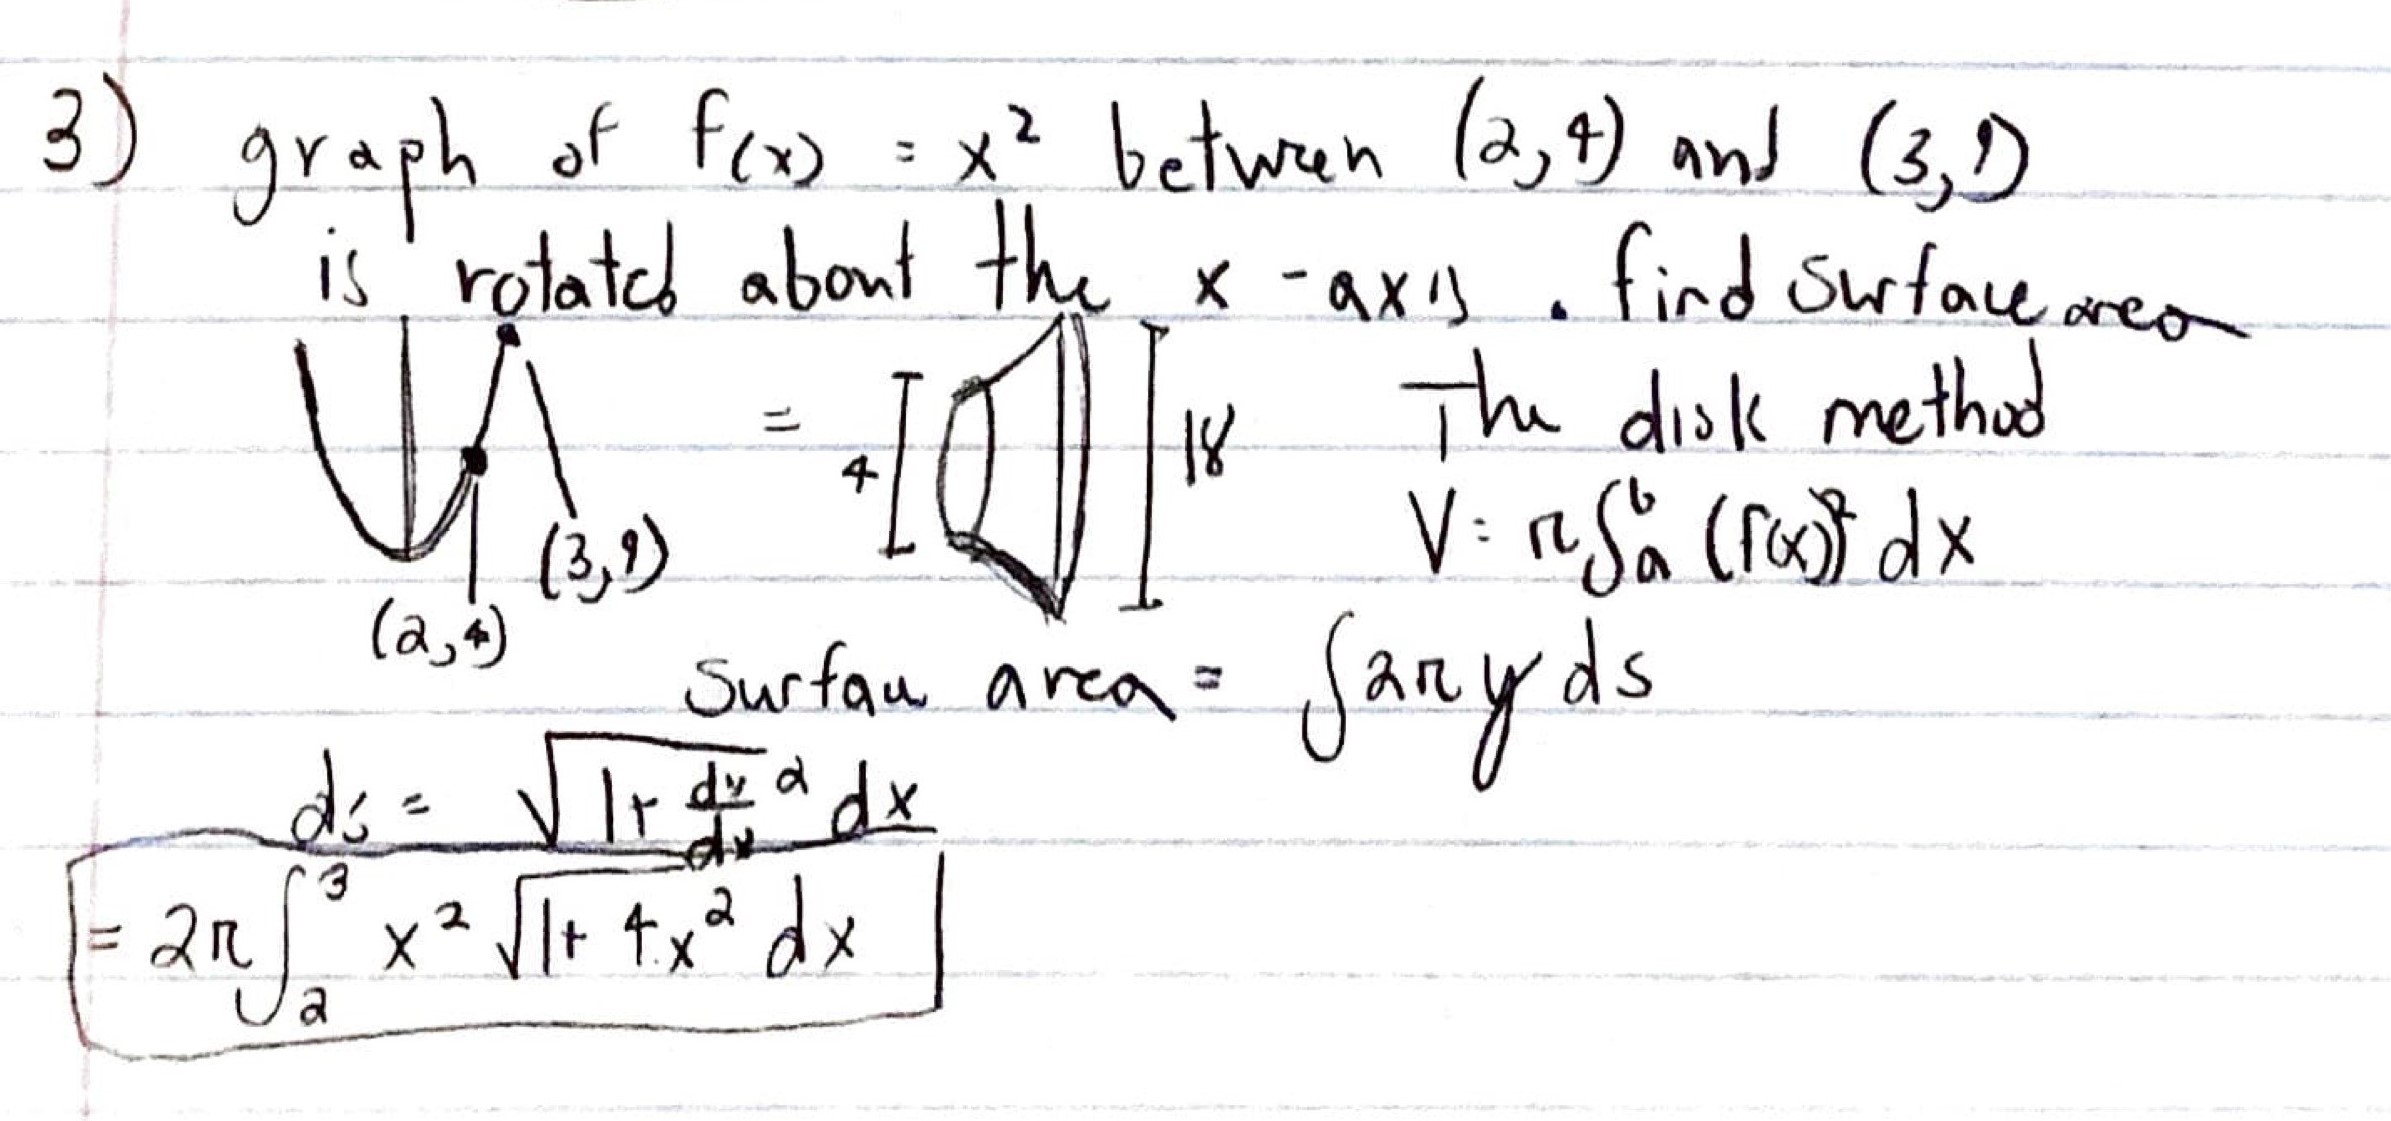 3) graph of f(x) = x² between (2,4) and (3,9)
is rotated about the x-axis. find surface area
= 4 18 The disk method
(3,9) V = π∫ₐᵇ (f(x))² dx
(2,4)
Surface area = ∫2πy ds
ds = √(1+ dy/dx ²) dx
= 2π ∫₂³ x² √(1+4x²) dx